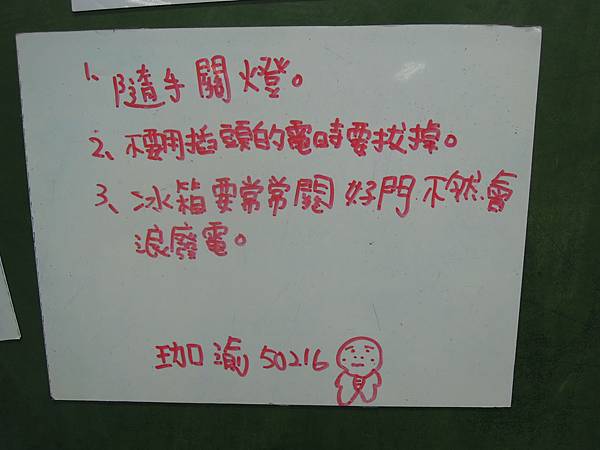 1、隨手關燈。
2、不要用插頭的電時要拔掉。
3、冰箱要常常關好門不然會
浪廢電。
珈渝50216